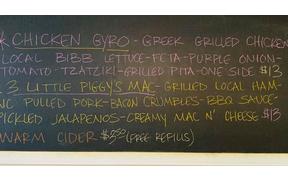 CHICKEN GYRO - GREEK GRILLED CHICKEN
LOCAL BIBB LETTUCE - FETA - PURPLE ONION -
TOMATO - TZATZIKI - GRILLED PITA - ONE SIDE $13
3 LITTLE PIGGY'S MAC - GRILLED LOCAL HAM -
PULLED PORK - BACON CRUMBLES - BBQ SAUCE -
PICKLED JALAPENOS - CREAMY MAC N' CHEESE $13
WARM CIDER $3.50 (FREE REFILLS)